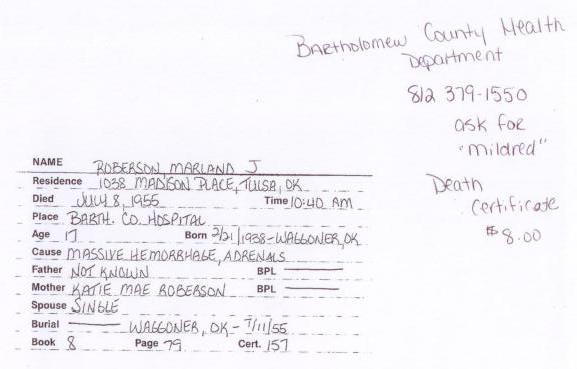 Bartholomew County Health
Department
812 379-1550
ask for
"Mildred"
Death
Certificate
$8.00
NAME ROBERSON, MARLAND J
Residence 1038 MADISON PLACE, TULSA, OK
Died JULY 8, 1955 Time 10:40 AM
Place BARTH. CO. HOSPITAL
Age 17 Born 2/21/1938-WAGGONER, OK
Cause MASSIVE HEMORRHAGE, ADRENALS
Father NOT KNOWN BPL —
Mother KATIE MAE ROBERSON BPL —
Spouse SINGLE
Burial — WAGGONER, OK - 7/11/55
Book 8 Page 79 Cert. 157